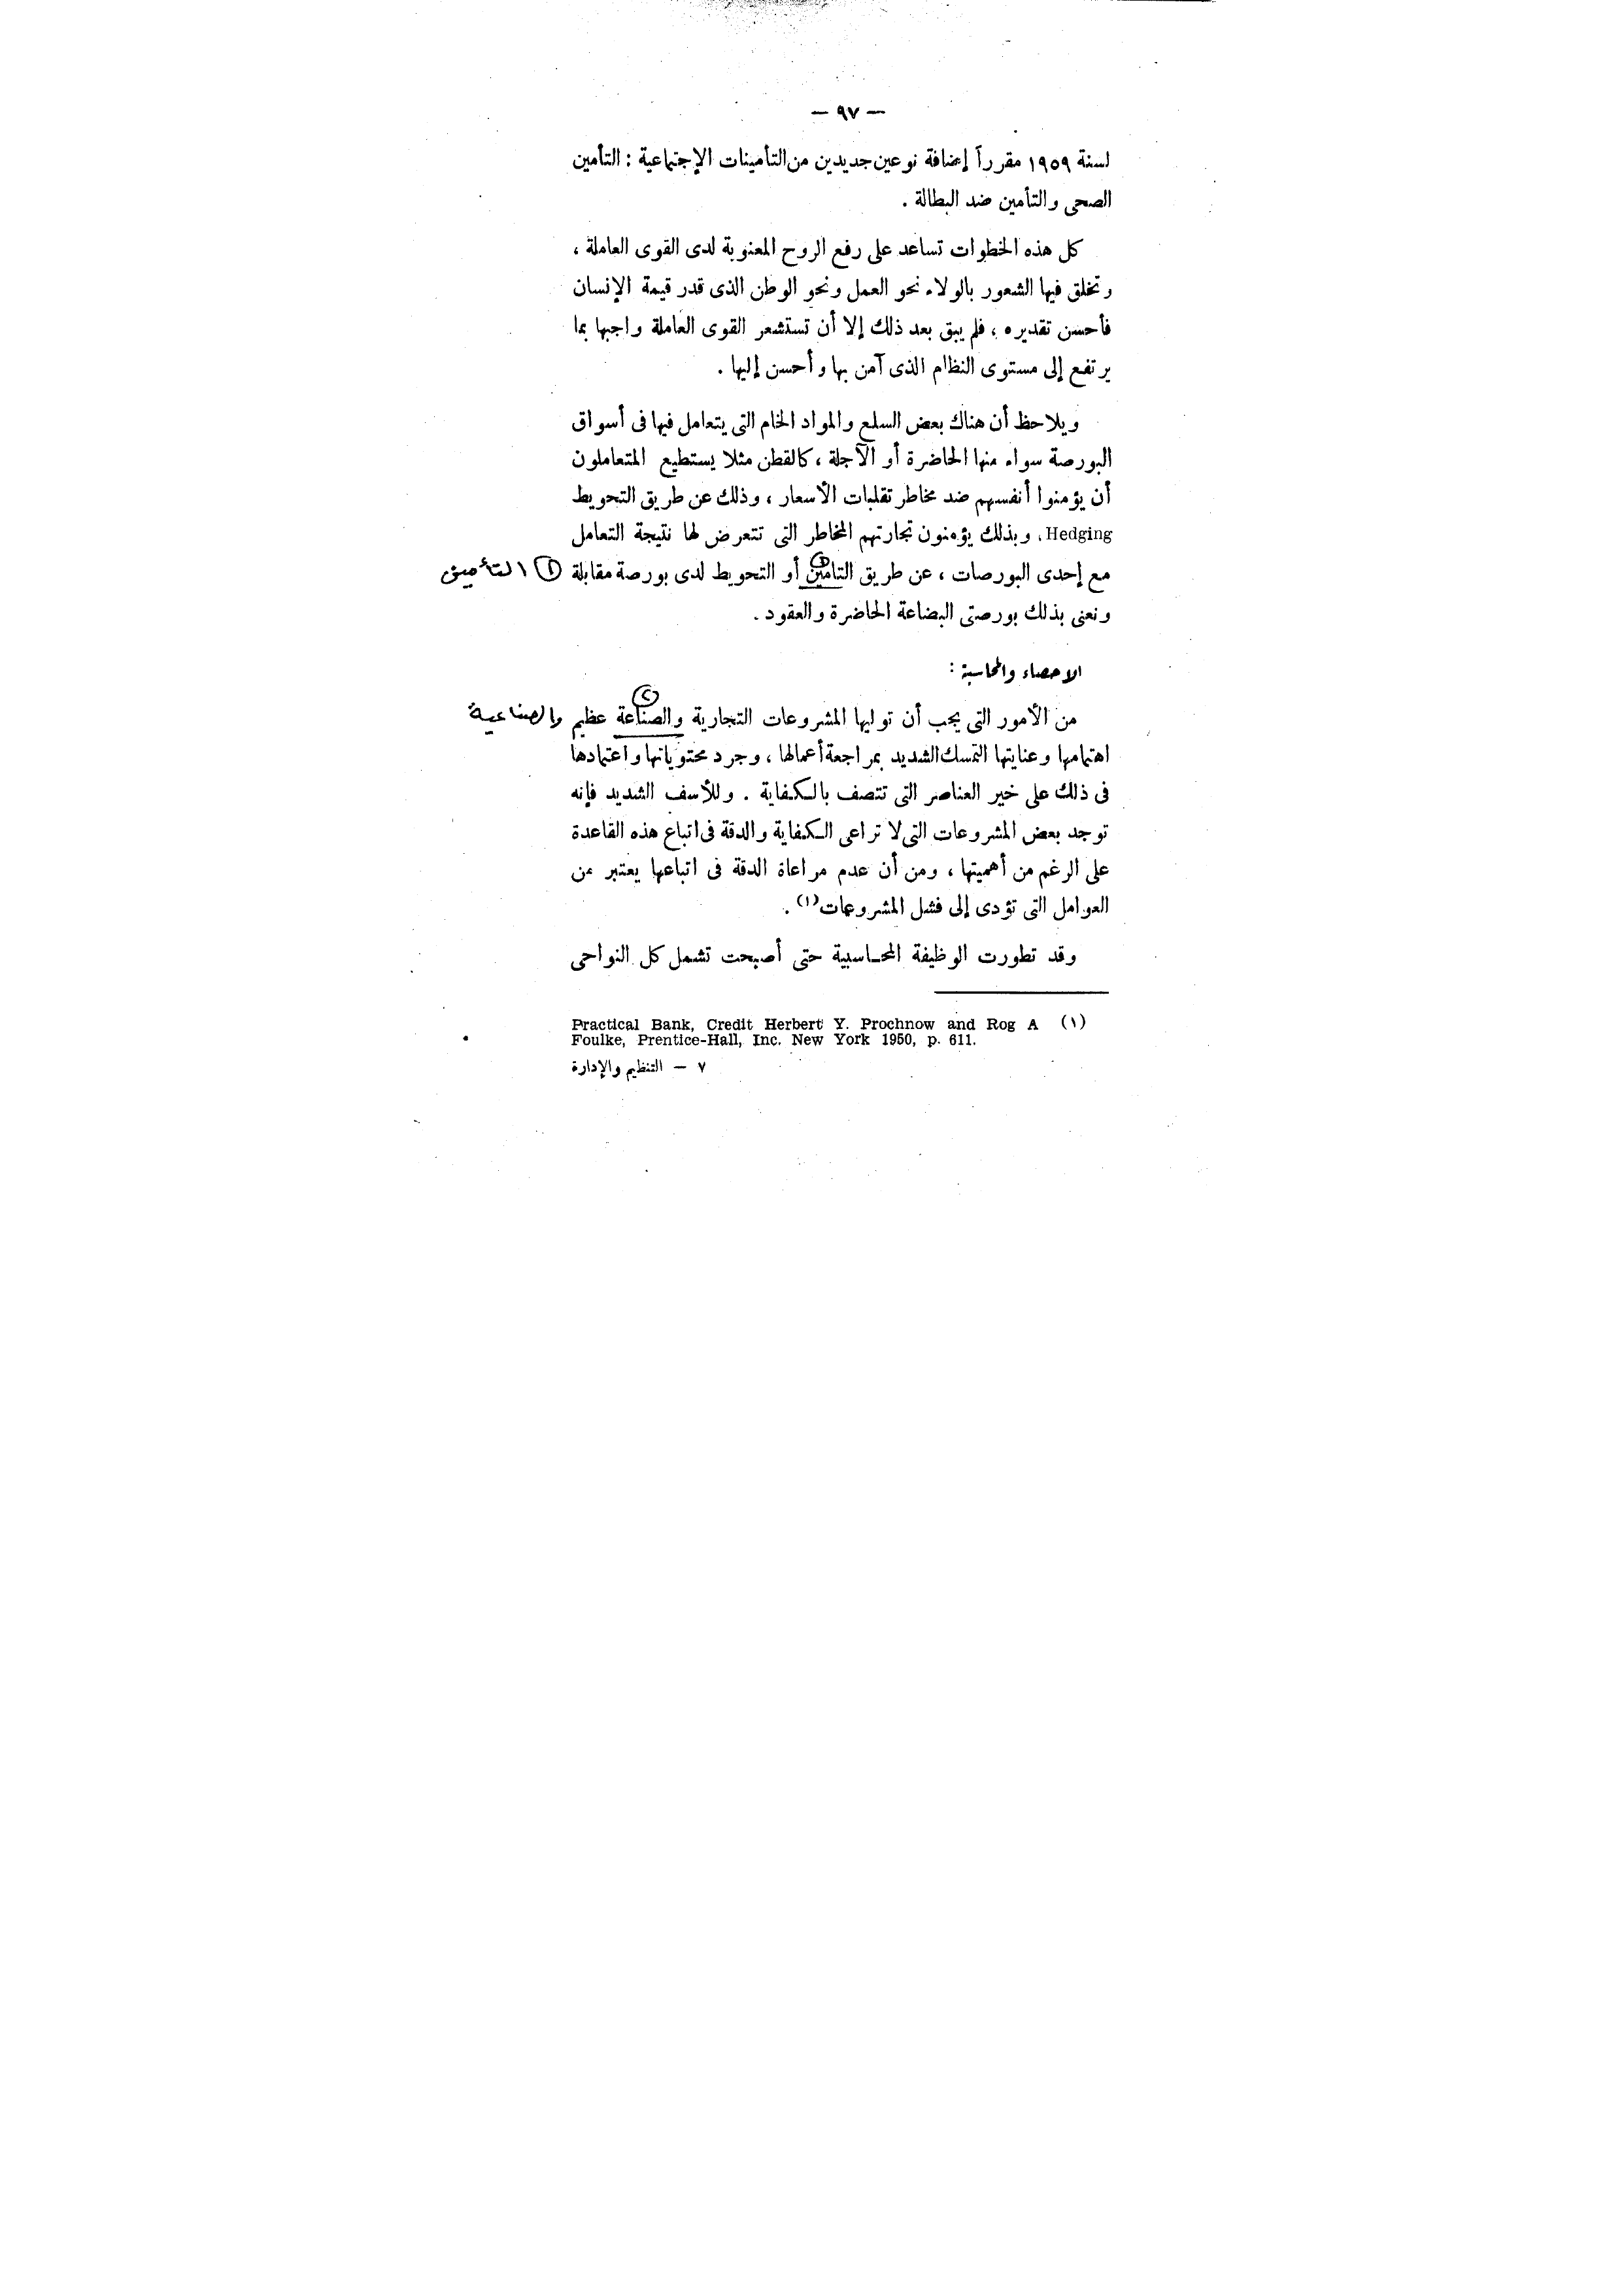 — ٩٧ —
لسنة ١٩٥٩ مقرراً إضافة نوعين جديدين من التأمينات الإجتماعية : التأمين
الصحى والتأمين ضد البطالة .
كل هذه الخطوات تساعد على رفع الروح المعنوية لدى القوى العاملة ،
وتخلق فيها الشعور بالولاء نحو العمل ونحو الوطن الذى قدر قيمة الإنسان
فأحسن تقديره ، فلم يبق بعد ذلك إلا أن تستشعر القوى العاملة واجبها بما
يرتفع إلى مستوى النظام الذى آمن بها وأحسن إليها .
ويلاحظ أن هناك بعض السلع والمواد الخام التى يتعامل فيها فى أسواق
البورصة سواء منها الحاضرة أو الآجلة ، كالقطن مثلا يستطيع المتعاملون
أن يؤمنوا أنفسهم ضد مخاطر تقلبات الأسعار ، وذلك عن طريق التحويط
Hedging ، وبذلك يؤمنون تجارتهم المخاطر التى تتعرض لها نتيجة التعامل
مع إحدى البورصات ، عن طريق التامين (١) أو التحويط لدى بورصة مقابلة (١) التأمين
ونعنى بذلك بورصتى البضاعة الحاضرة والعقود .
الاحصاء والمحاسبة :
من الأمور التى يجب أن توليها المشروعات التجارية والصناعة (٢) عظيم والصناعية
اهتمامها وعنايتها التمسك الشديد بمراجعة أعمالها ، وجرد محتوياتها واعتمادها
فى ذلك على خير العناصر التى تتصف بالكفاية . وللأسف الشديد فإنه
توجد بعض المشروعات التى لا تراعى الكفاية والدقة فى اتباع هذه القاعدة
على الرغم من أهميتها ، ومن أن عدم مراعاة الدقة فى اتباعها يعتبر من
العوامل التى تؤدى إلى فشل المشروعات (١) .
وقد تطورت الوظيفة المحاسبية حتى أصبحت تشمل كل النواحى
(١) Practical Bank, Credit Herbert Y. Prochnow and Rog A
Foulke, Prentice-Hall, Inc. New York 1950, p. 611.
٧ — التنظيم والإدارة